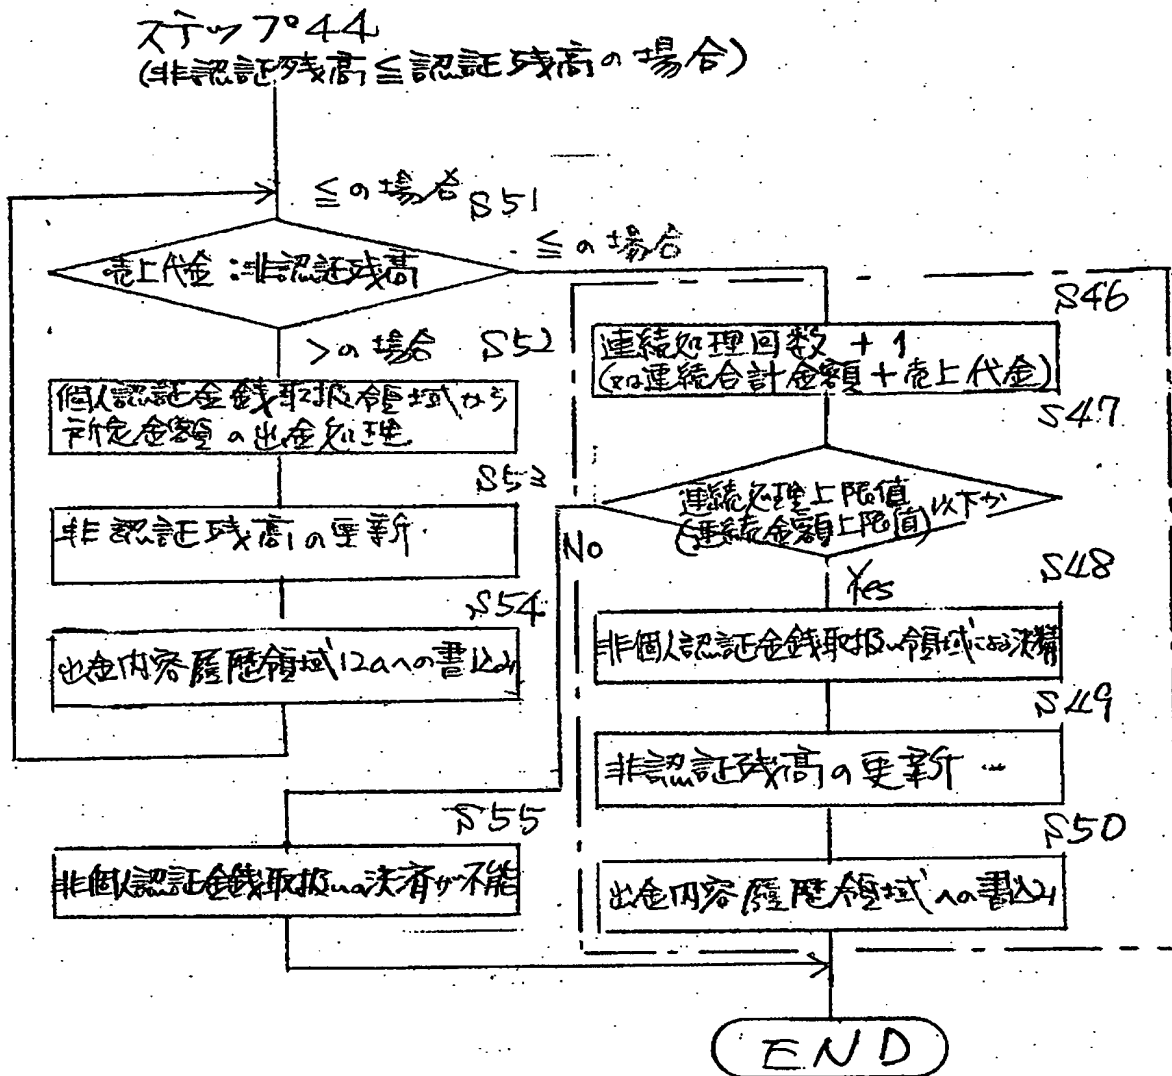 ステップ44
(非認証残高≦認証残高の場合)
≦の場合
S51
売上代金:非認証残高
≦の場合
>の場合
S52
個人認証金銭取扱領域から
所定金額の出金処理
S53
非認証残高の更新
S54
出金内容履歴領域12aへの書込み
S55
非個人認証金銭取扱いの決済が不能
S46
連続処理回数+1
(又は連続合計金額+売上代金)
S47
連続処理上限値
(連続金額上限値)以下か
No
Yes
S48
非個人認証金銭取扱い領域による決済
S49
非認証残高の更新
S50
出金内容履歴領域への書込み
END